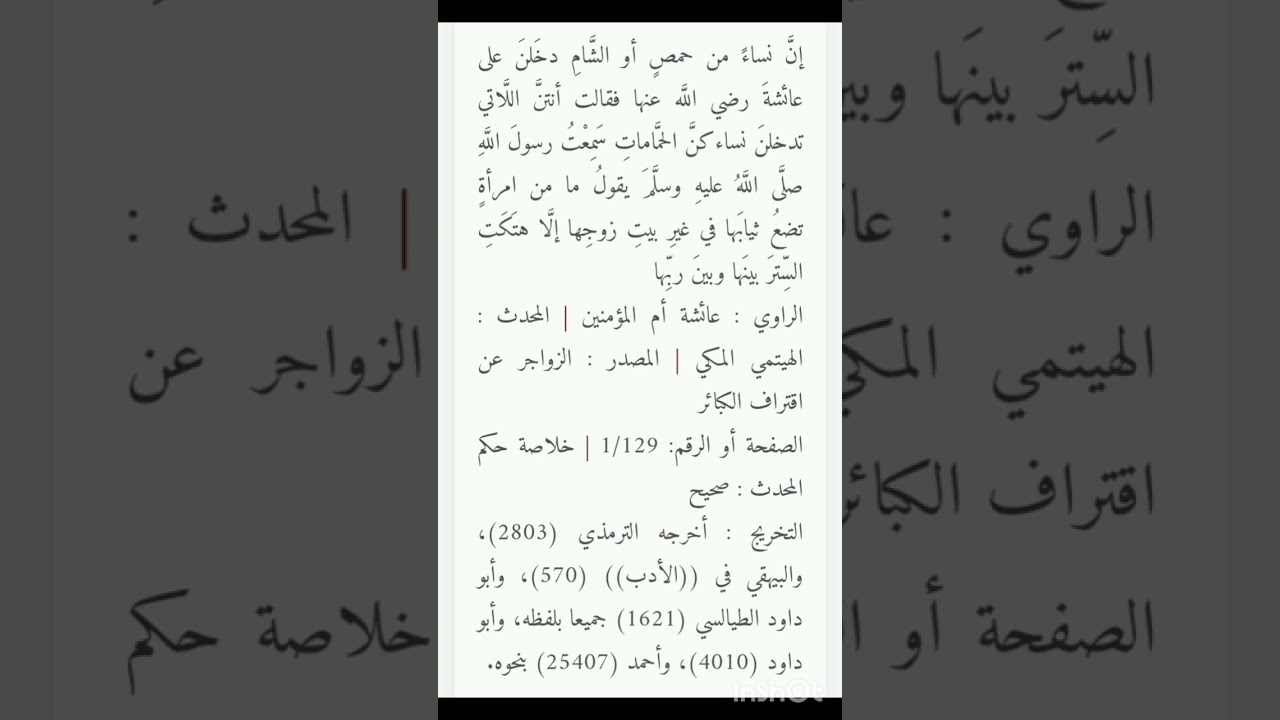 إنَّ نساءً من حمصٍ أو الشَّامِ دخَلنَ على
عائشةَ رضي اللَّه عنها فقالت أنتنَّ اللَّاتي
تدخلنَ نساءكنَّ الحمَّاماتِ سَمِعْتُ رسولَ اللَّهِ
صلَّى اللَّهُ عليهِ وسلَّمَ يقولُ ما من امرأةٍ
تضعُ ثيابَها في غيرِ بيتِ زوجِها إلَّا هتَكَتِ
السِّترَ بينَها وبينَ ربِّها
الراوي : عائشة أم المؤمنين | المحدث :
الهيتمي المكي | المصدر : الزواجر عن
اقتراف الكبائر
الصفحة أو الرقم: 1/129 | خلاصة حكم
المحدث : صحيح
التخريج : أخرجه الترمذي (2803)،
والبيهقي في ((الأدب)) (570)، وأبو
داود الطيالسي (1621) جميعا بلفظه، وأبو
داود (4010)، وأحمد (25407) بنحوه.
InShOt